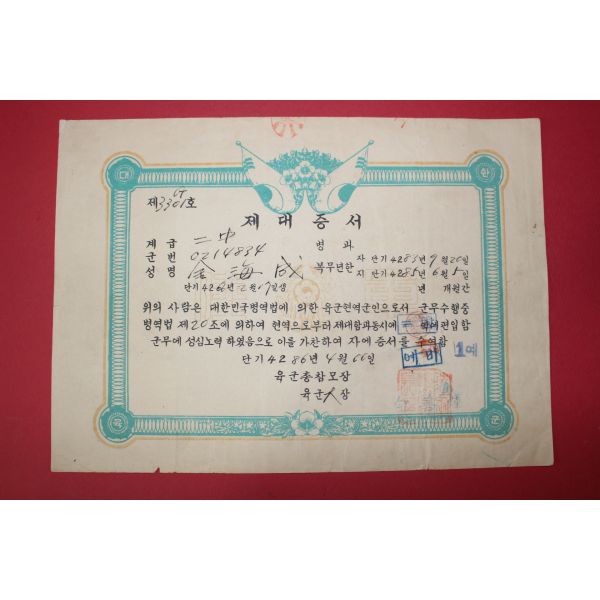 대 한
제3301호
제대증서
계급 二中 병과
군번 0214834 자 단기4283년9월20일
성명 金海成 복무년한 지 단기4285년6월5일
단기426 년 월 일생 년 개월간
위의 사람은 대한민국병역법에 의한 육군현역군인으로서 군무수행중
병역법 제20조에 의하여 현역으로부터 제대함과동시에 편입함
군무에 성심노력 하였음으로 이를 가찬하여 자에 증서를 수여함
예비 1예
단기4286년4월 일
육군총참모장
육군 장
육 군